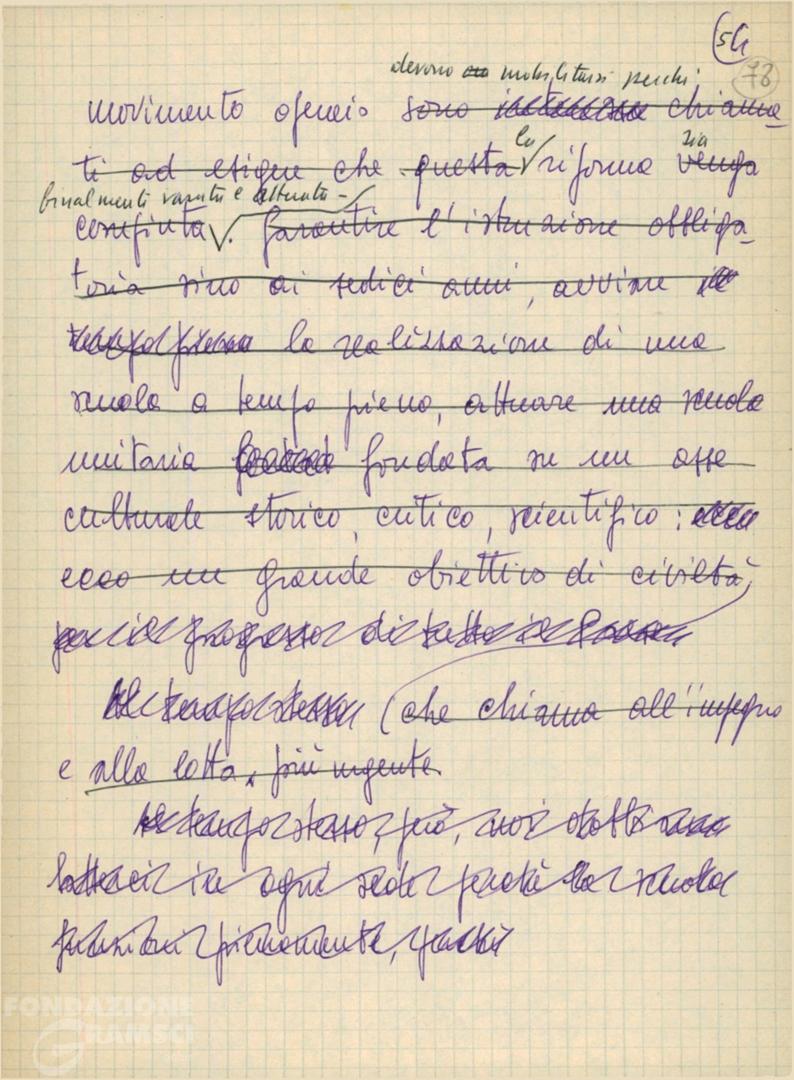 54
78
devono mobilitarsi perché
movimento operaio sono chiama-
ti ad esigere che questa la riforma venga sia
finalmente varata e attuata -
compiuta. Garantire l'istruzione obbliga-
toria sino ai sedici anni, avviare
la realizzazione di una
scuola a tempo pieno, attuare una scuola
unitaria fondata su un asse
culturale storico, critico, scientifico:
ecco un grande obiettivo di civiltà,
per il progresso di tutto il Paese
Al tempo stesso (che chiama all'impegno
e alla lotta, più urgente.
Al tempo stesso, però, noi dobbiamo
batterci in ogni sede perché la scuola
funzioni pienamente, perché
FONDAZIONE
GRAMSCI